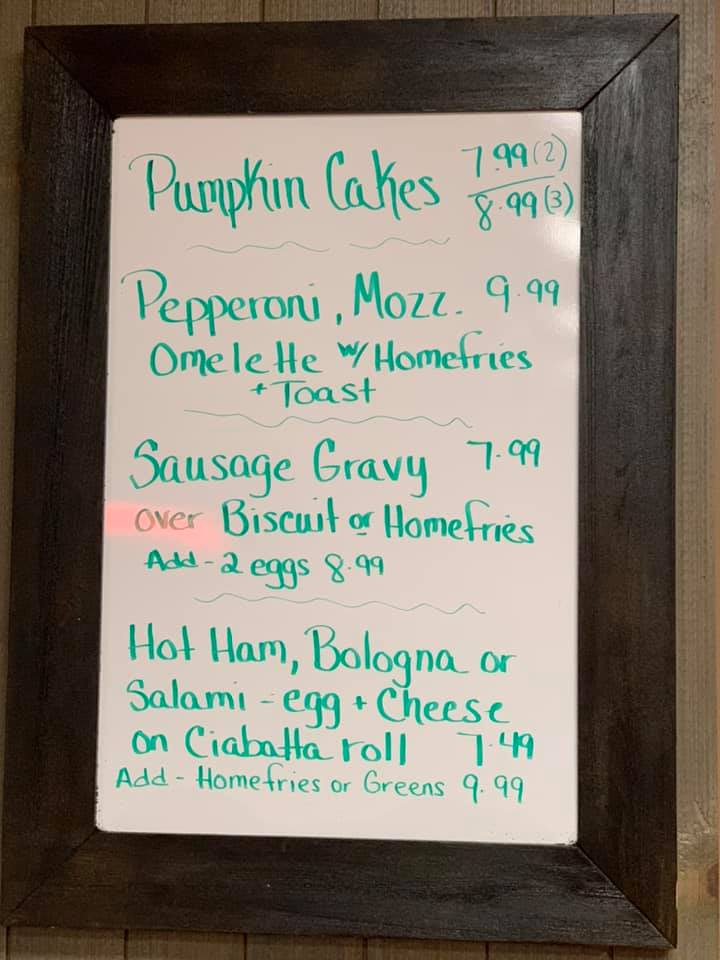 Pumpkin Cakes 7.99 (2)
8.99 (3)
Pepperoni, Mozz. 9.99
Omelette w/ Homefries
+ Toast
Sausage Gravy 7.99
over Biscuit or Homefries
Add - 2 eggs 8.99
Hot Ham, Bologna or
Salami - egg + Cheese
on Ciabatta roll 7.49
Add - Homefries or Greens 9.99